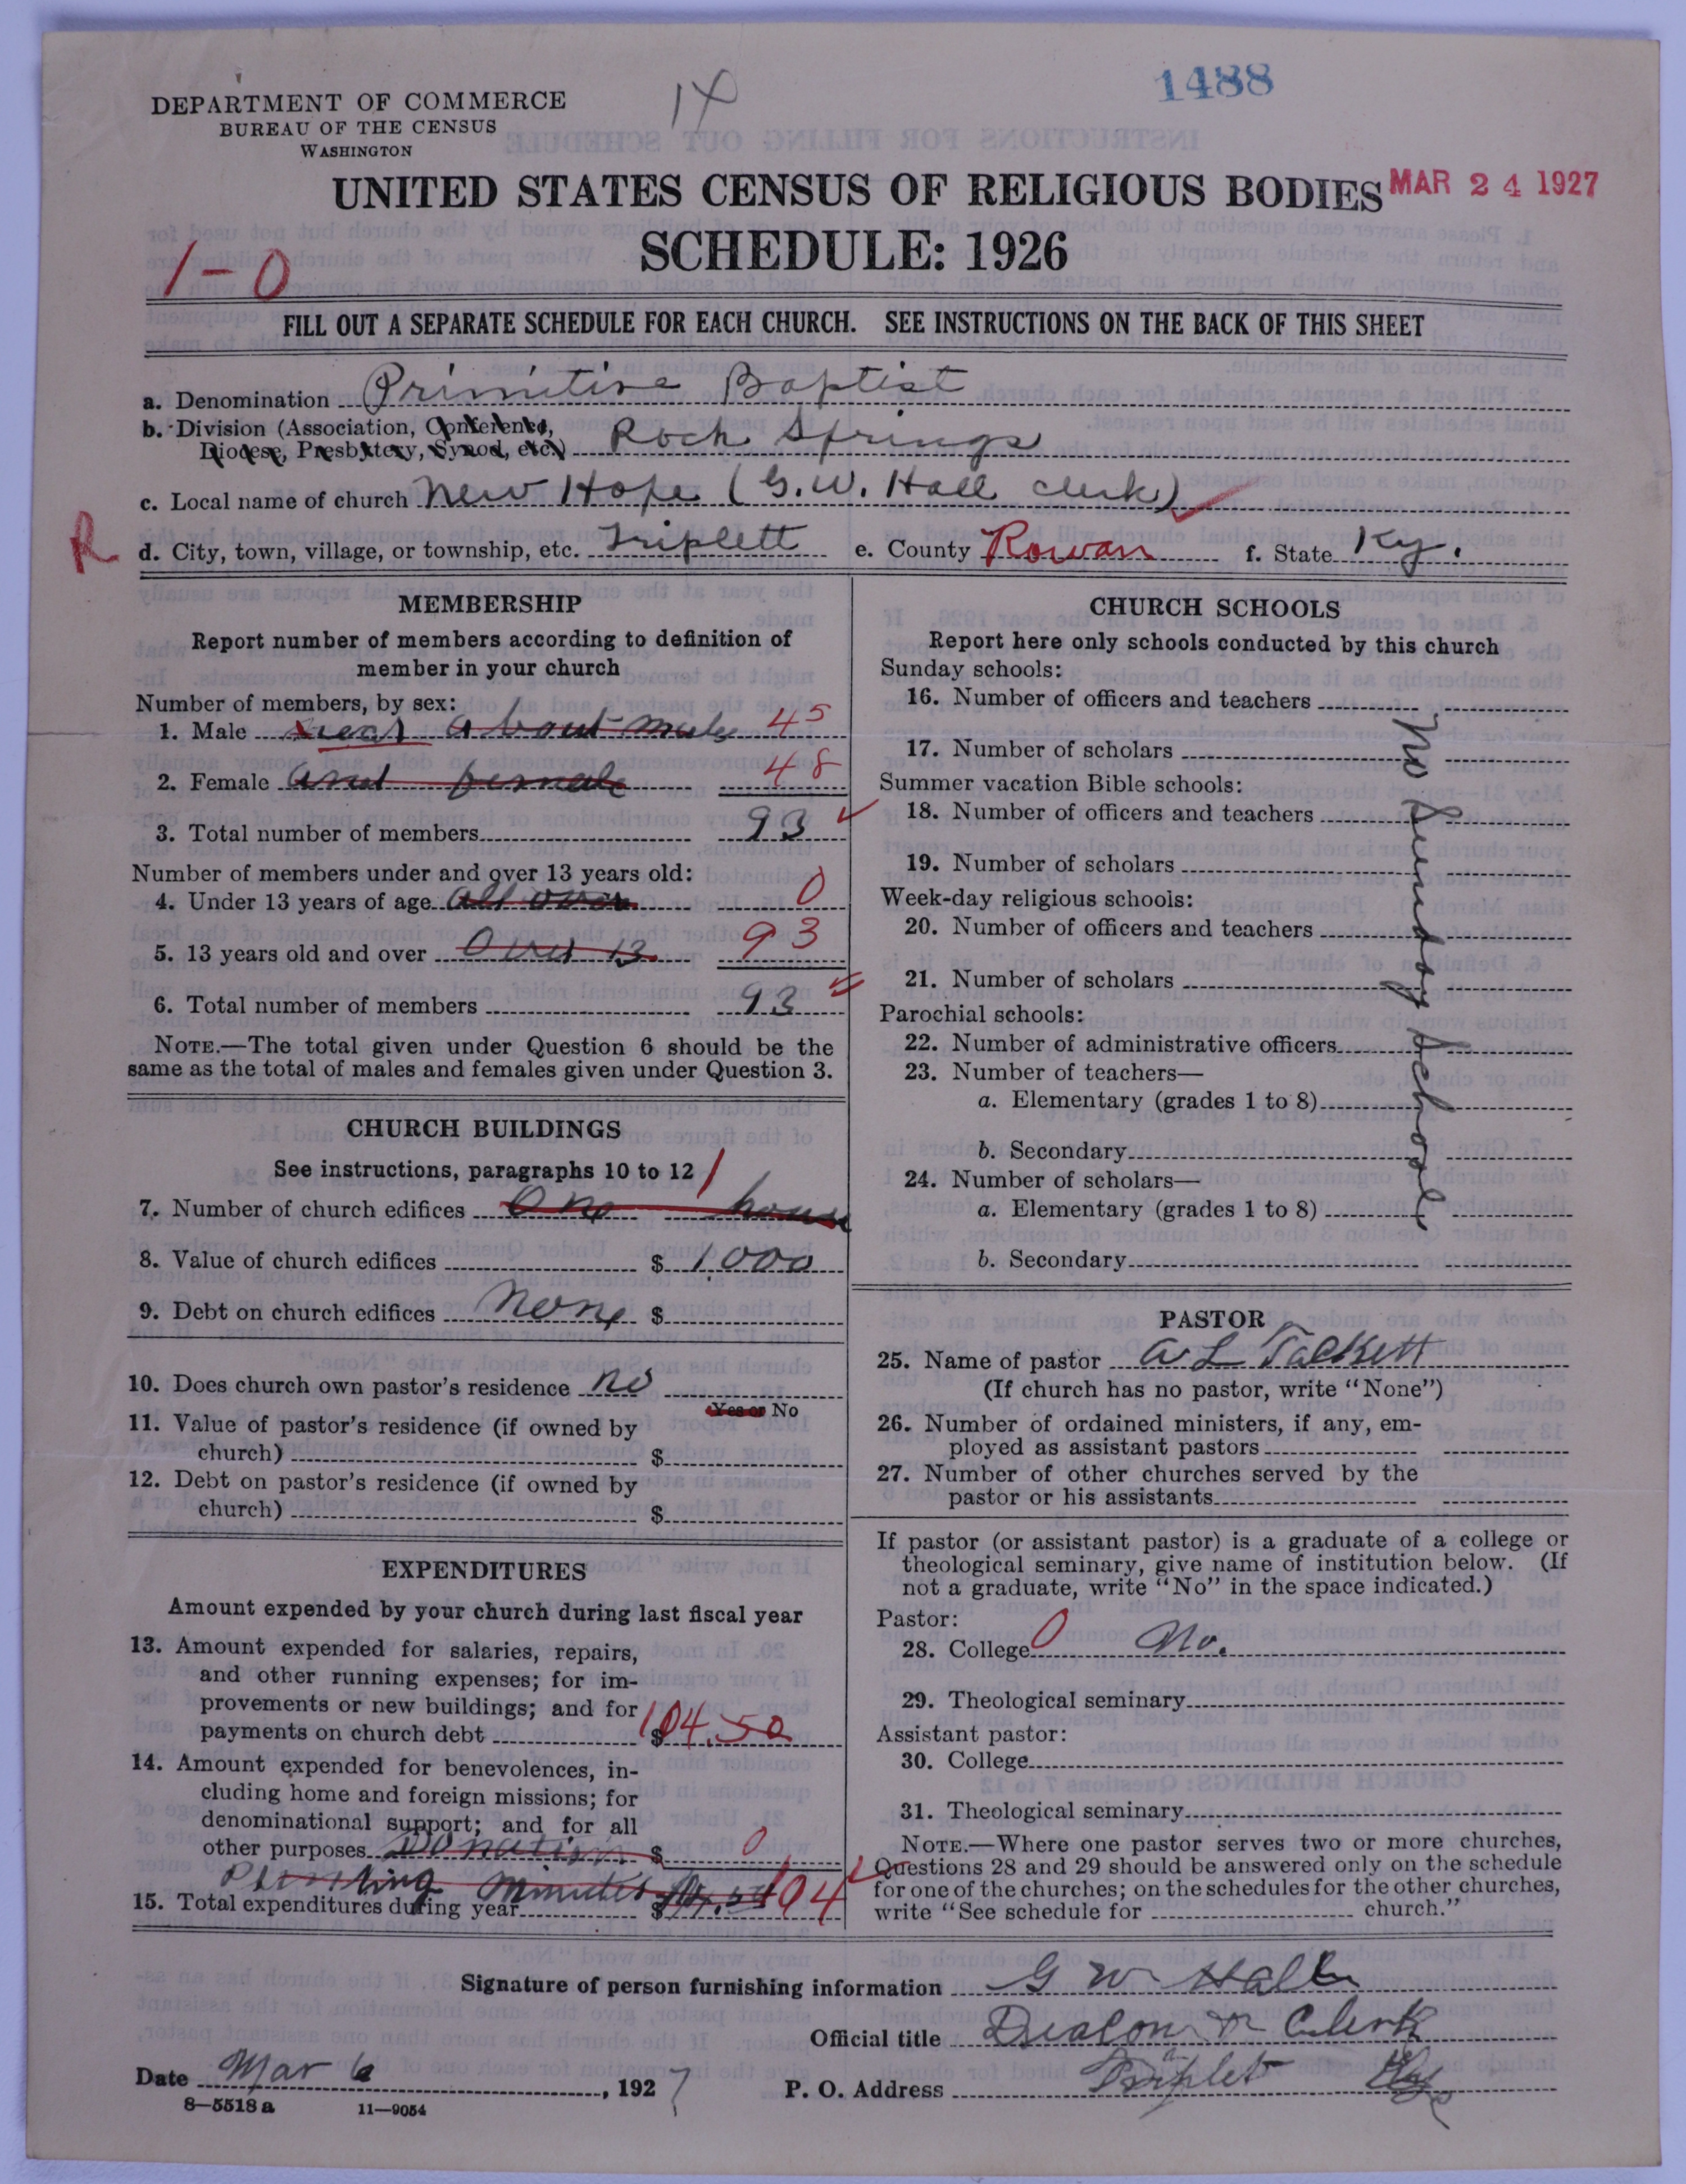 1488
DEPARTMENT OF COMMERCE
BUREAU OF THE CENSUS
WASHINGTON
UNITED STATES CENSUS OF RELIGIOUS BODIES MAR 24 1927
1-0 SCHEDULE: 1926
FILL OUT A SEPARATE SCHEDULE FOR EACH CHURCH. SEE INSTRUCTIONS ON THE BACK OF THIS SHEET
a. Denomination Primitive Baptist
b. Division (Association, Conference,
Diocese, Presbytery, Synod, etc.) Rock Springs
c. Local name of church New Hope (G.W. Hall clerk)
R d. City, town, village, or township, etc. Triplett e. County Rowan f. State Ky.
MEMBERSHIP
Report number of members according to definition of
member in your church
Number of members, by sex:
1. Male near about male 45
2. Female and female 48
3. Total number of members 93
Number of members under and over 13 years old:
4. Under 13 years of age all over 0
5. 13 years old and over Over 13 93
6. Total number of members 93
NOTE.—The total given under Question 6 should be the
same as the total of males and females given under Question 3.
CHURCH BUILDINGS
See instructions, paragraphs 10 to 12
7. Number of church edifices One house 1
8. Value of church edifices $ 1,000
9. Debt on church edifices None $
10. Does church own pastor's residence no
Yes or No
11. Value of pastor's residence (if owned by
church) $
12. Debt on pastor's residence (if owned by
church) $
EXPENDITURES
Amount expended by your church during last fiscal year
13. Amount expended for salaries, repairs,
and other running expenses; for im-
provements or new buildings; and for
payments on church debt $ 104.50
14. Amount expended for benevolences, in-
cluding home and foreign missions; for
denominational support; and for all
other purposes Donation $ 0
Printing minutes
15. Total expenditures during year $ 104
CHURCH SCHOOLS
Report here only schools conducted by this church
Sunday schools:
16. Number of officers and teachers
17. Number of scholars
Summer vacation Bible schools:
18. Number of officers and teachers
19. Number of scholars
Week-day religious schools:
20. Number of officers and teachers
21. Number of scholars
Parochial schools:
22. Number of administrative officers
23. Number of teachers—
a. Elementary (grades 1 to 8)
b. Secondary
24. Number of scholars—
a. Elementary (grades 1 to 8)
b. Secondary
No Sunday School
PASTOR
25. Name of pastor A L Tackett
(If church has no pastor, write "None")
26. Number of ordained ministers, if any, em-
ployed as assistant pastors
27. Number of other churches served by the
pastor or his assistants
If pastor (or assistant pastor) is a graduate of a college or
theological seminary, give name of institution below. (If
not a graduate, write "No" in the space indicated.)
Pastor:
28. College 0 No.
29. Theological seminary
Assistant pastor:
30. College
31. Theological seminary
NOTE.—Where one pastor serves two or more churches,
Questions 28 and 29 should be answered only on the schedule
for one of the churches; on the schedules for the other churches,
write "See schedule for church."
Signature of person furnishing information G W Hall
Official title Deacon or Clerk
Date Mar 6, 1927 P. O. Address Triplet Ky
8—5518 a 11—9054